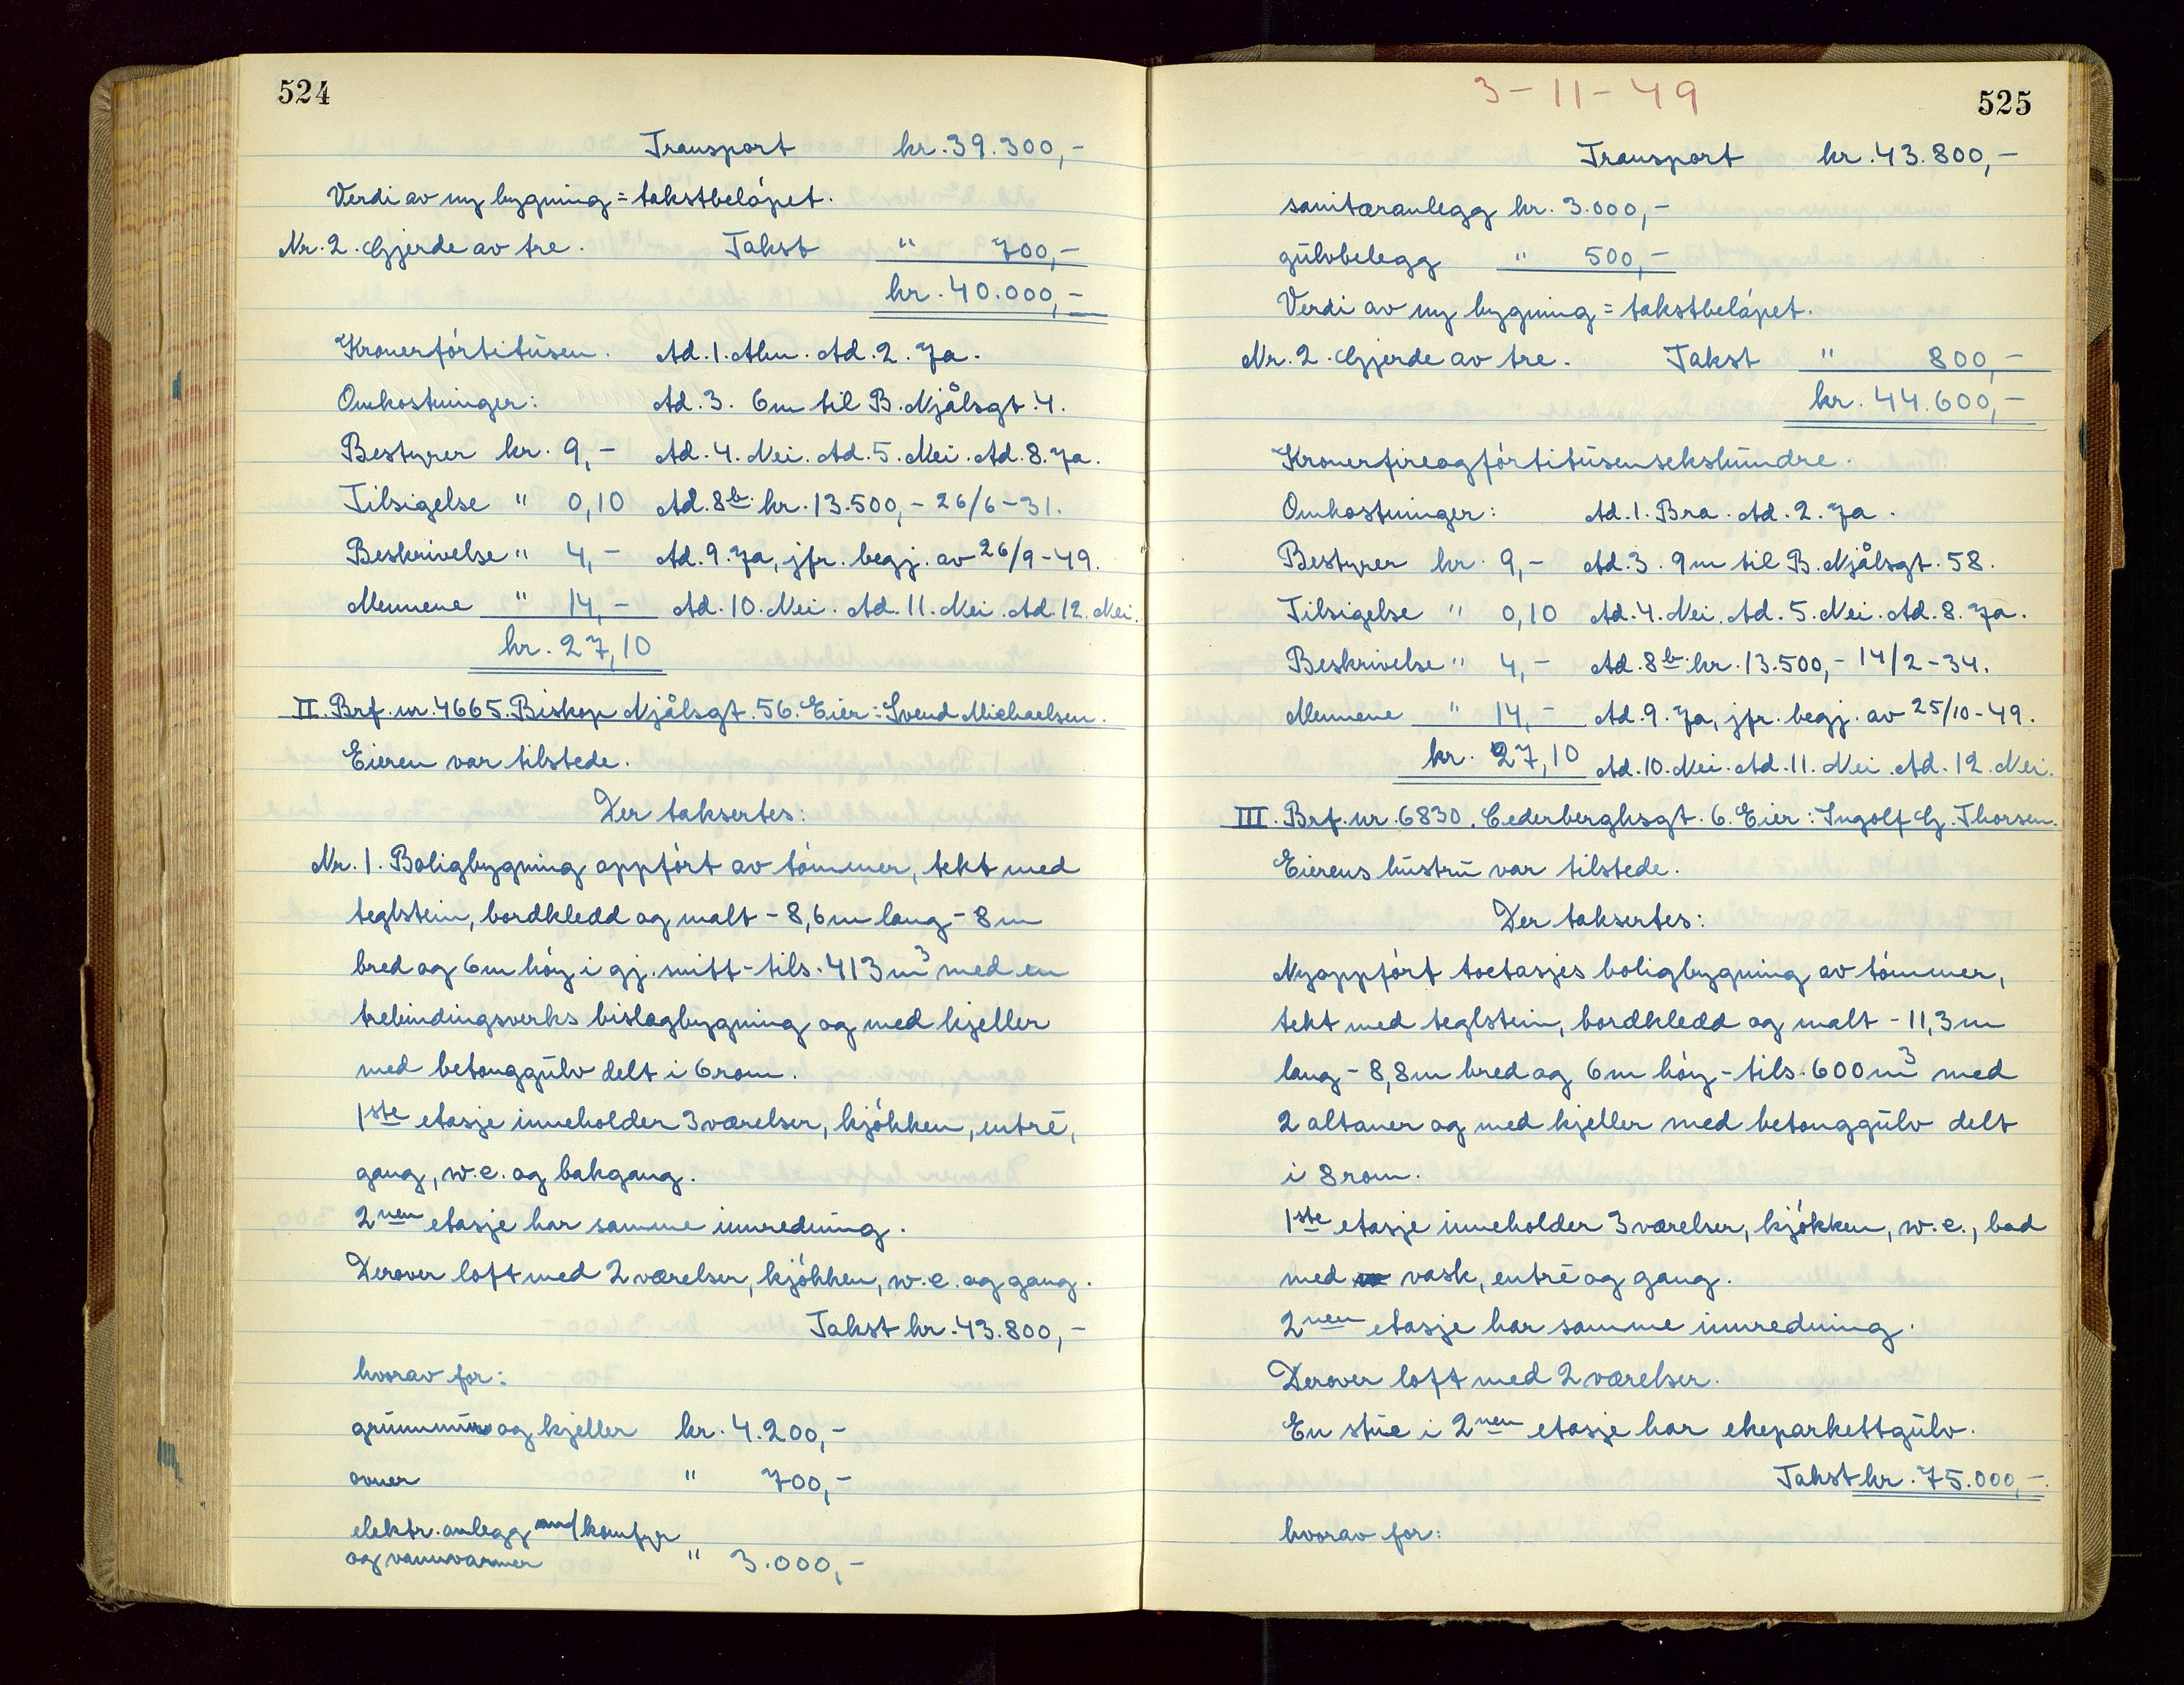 524
Transport kr. 39.300,-
Verdi av ny bygning = takstbeløpet.
Nr. 2. Gjerde av tre. Takst " 700,-
kr. 40.000,-
Kronerførtitusen. Ad. 1. Alm. Ad. 2. Ja.
Omkostninger: Ad. 3. 6m til B. Njålsgt. 4.
Bestyrer kr. 9,- Ad. 4. Nei. Ad. 5. Nei. Ad. 8. Ja.
Tilsigelse " 0,10 Ad. 8b. kr. 13.500,- 26/6-31.
Beskrivelse " 4,- Ad. 9. Ja, jfr. begj. av 26/9-49.
Mennene " 14,- Ad. 10. Nei. Ad. 11. Nei. Ad. 12. Nei.
kr. 27,10
II. Brf. nr. 4665. Biskop Njålsgt. 56. Eier: Svend Michaelsen.
Eieren var tilstede.
Der taksertes:
Nr. 1. Boligbygning oppført av tømmer, tekt med
teglstein, bordkledd og malt - 8,6m lang - 8m
bred og 6m høy i gj. snitt - tils. 413m³ med en
trebindingsverks bislagbygning og med kjeller
med betonggulv delt i 6 rom.
1ste etasje inneholder 3 værelser, kjøkken, entré,
gang, w.c. og bakgang.
2nen etasje har samme innredning.
Derover loft med 2 værelser, kjøkken, w.c. og gang.
Takst kr. 43.800,-
hvorav for:
grunnmur og kjeller kr. 4.200,-
ovner " 700,-
elektr. anlegg med komfyr
og vannvarmer " 3.000,-
3-11-49
525
Transport kr. 43.800,-
sanitæranlegg kr. 3.000,-
gulvbelegg " 500,-
Verdi av ny bygning = takstbeløpet.
Nr. 2. Gjerde av tre. Takst " 800,-
kr. 44.600,-
Kronerfireogførtitusensekshundre.
Omkostninger: Ad. 1. Bra. Ad. 2. Ja.
Bestyrer kr. 9,- Ad. 3. 9m til B. Njålsgt. 58.
Tilsigelse " 0,10 Ad. 4. Nei. Ad. 5. Nei. Ad. 8. Ja.
Beskrivelse " 4,- Ad. 8b. kr. 13.500,- 14/2-34.
Mennene " 14,- Ad. 9. Ja, jfr. begj. av 25/10-49.
kr. 27,10 Ad. 10. Nei. Ad. 11. Nei. Ad. 12. Nei.
III. Brf. nr. 6830. Cederberghsgt. 6. Eier: Ingolf G. Thorsen.
Eierens hustru var tilstede.
Der taksertes:
Nyoppført toetasjes boligbygning av tømmer,
tekt med teglstein, bordkledd og malt - 11,3m
lang - 8,8m bred og 6m høy - tils. 600m³ med
2 altaner og med kjeller med betonggulv delt
i 8 rom.
1ste etasje inneholder 3 værelser, kjøkken, w.c., bad
med vask, entré og gang.
2nen etasje har samme innredning.
Derover loft med 2 værelser.
En stue i 2nen etasje har ekeparkettgulv.
Takst kr. 75.000,-
hvorav for: